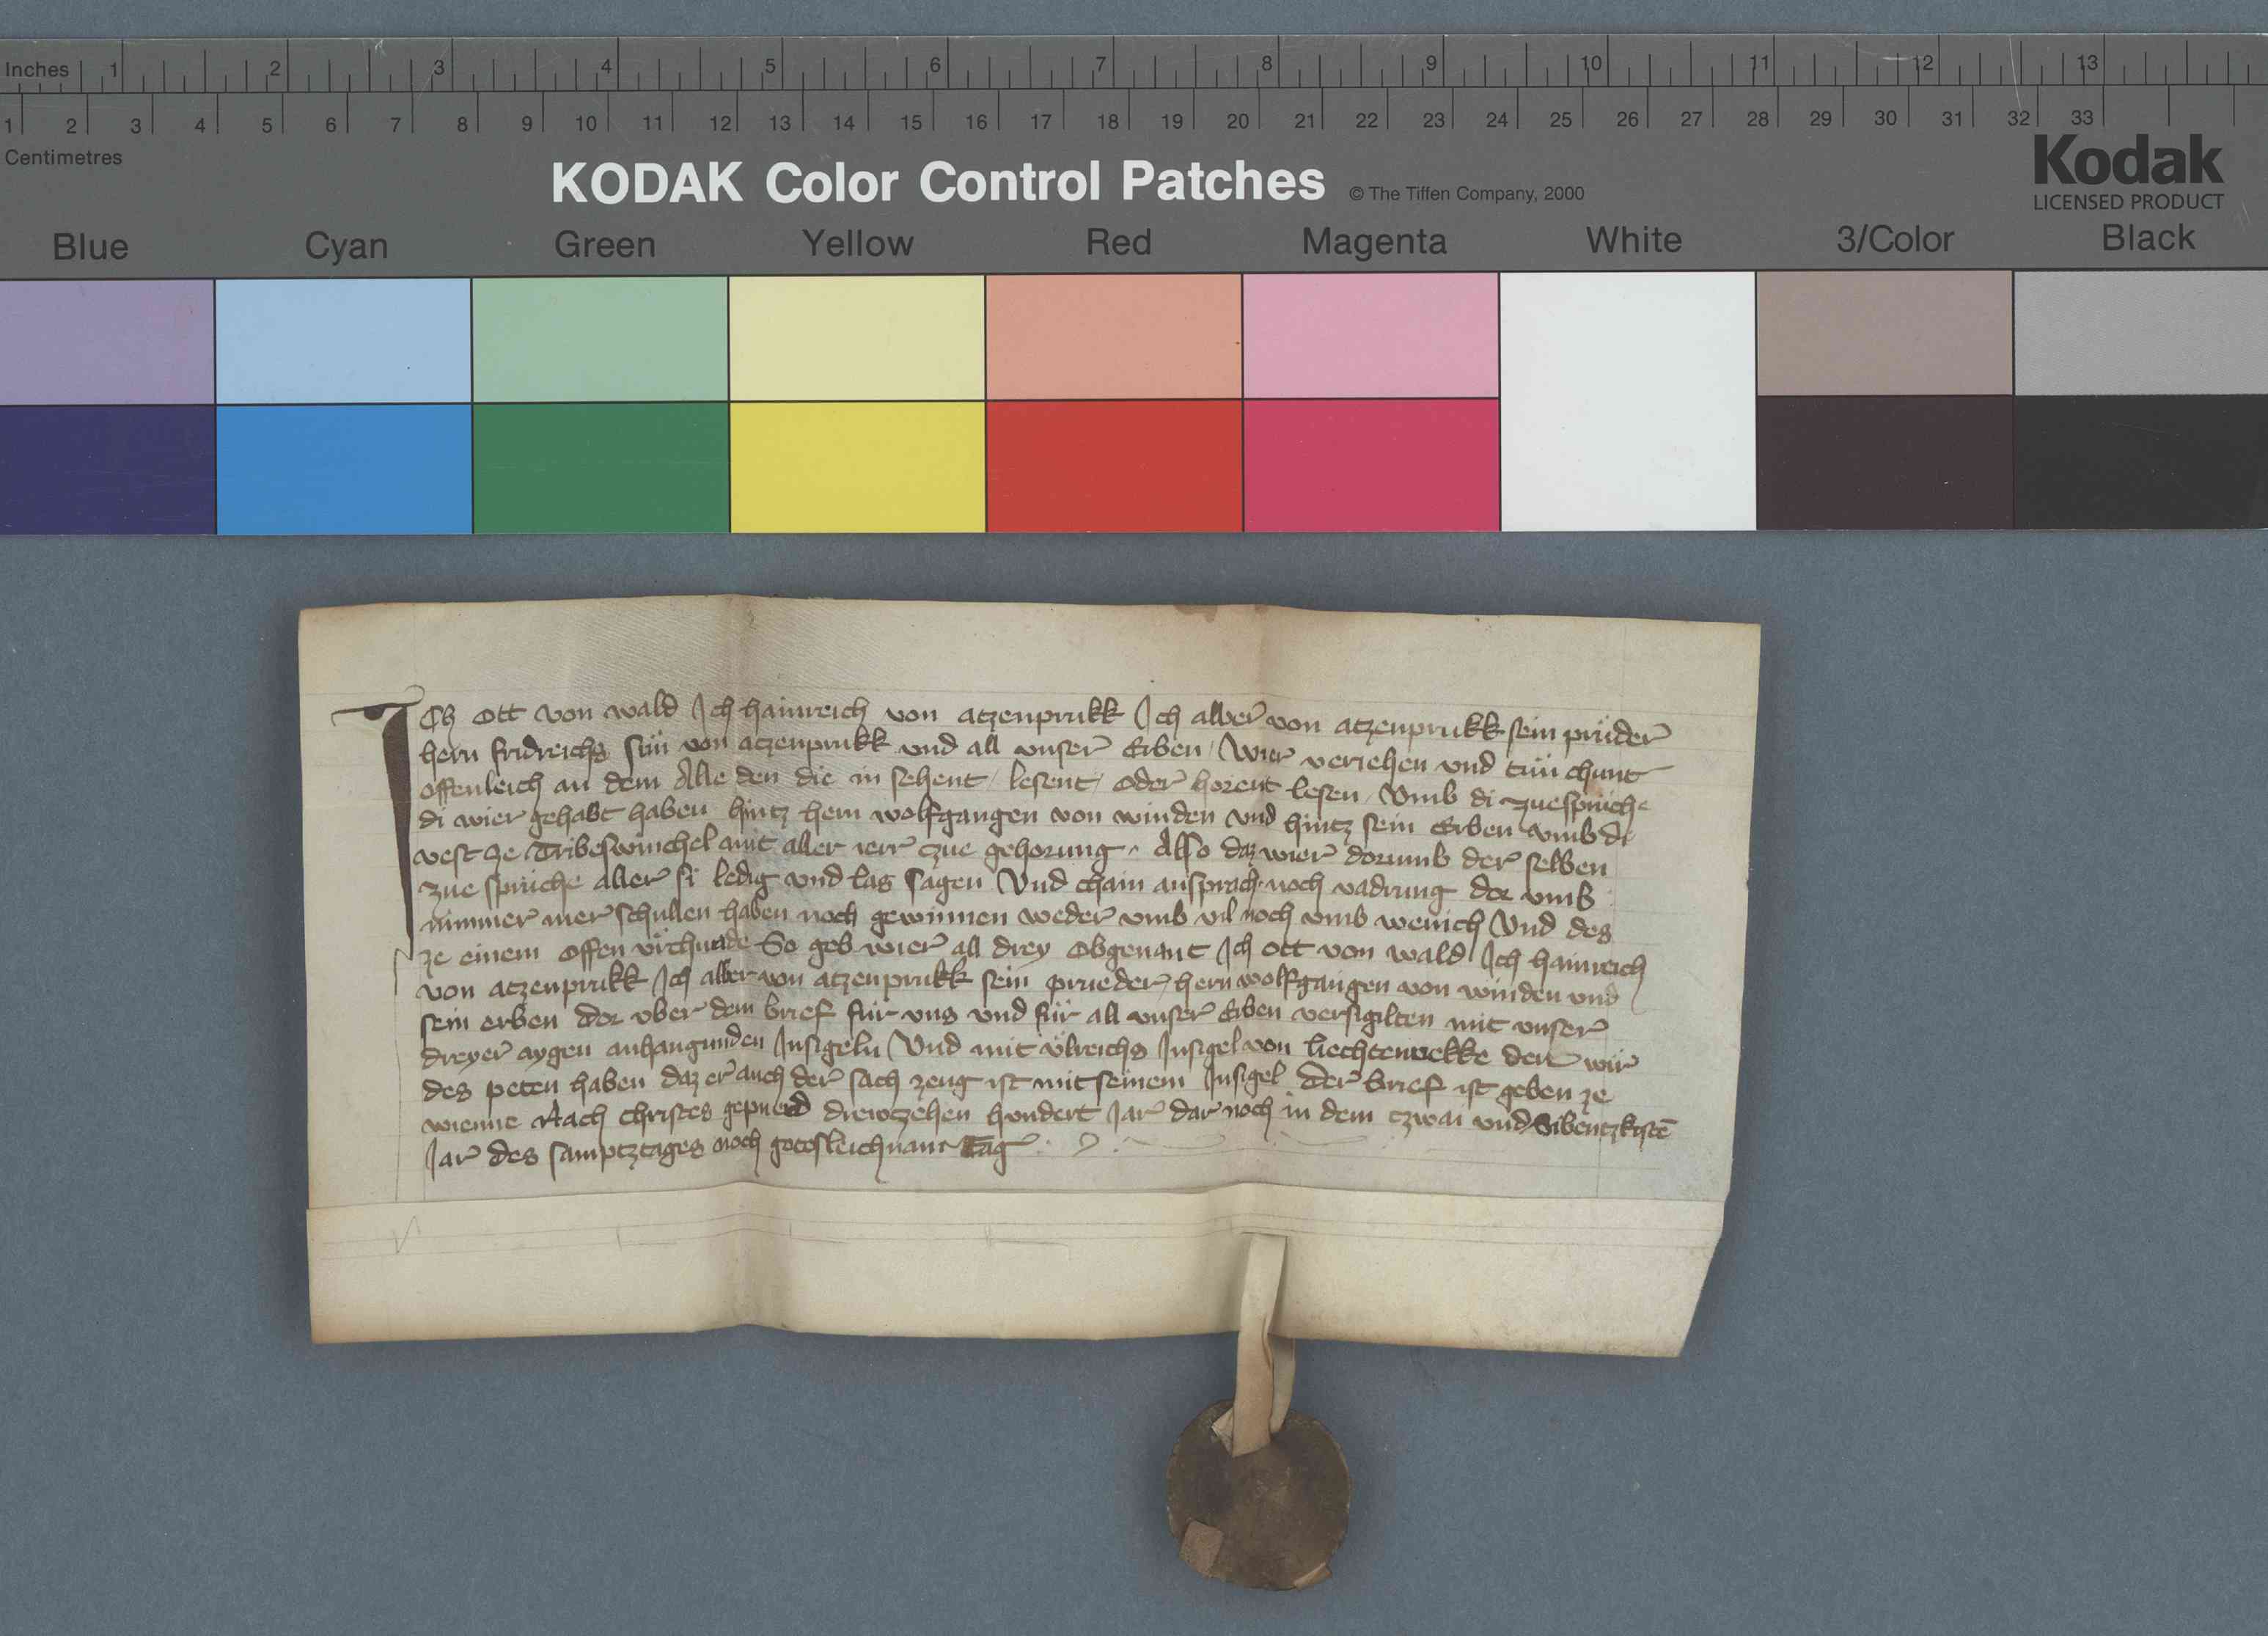 Inches 1 2 3 4 5 6 7 8 9 10 11 12 13
1 2 3 4 5 6 7 8 9 10 11 12 13 14 15 16 17 18 19 20 21 22 23 24 25 26 27 28 29 30 31 32 33
Centimetres
KODAK Color Control Patches © The Tiffen Company, 2000
Kodak
LICENSED PRODUCT
Blue Cyan Green Yellow Red Magenta White 3/Color Black
Ich Ott von wald Ich hainreich von atzenprukk Ich alber von atzenprukk sein prüder
hern fridreichs sün von atzenprukk und all unser Erben / Wier veriehen und tün chunt
offenleich an dem Alle den die in sehent / lesent / oder horent lesen / Umb di zuesprüche
di wier gehabt haben hintz hern wolfgangen von winden und hintz sein Erben umb di
vest ze Tribeswinchel mit aller ierr czue gehorung / Also daz wier dorumb der selben
zue sprüche aller si ledig und las sagen Und chain ansprach noch vadrung dor umb
nimmer mer schullen haben noch gewinnen weder umb vil noch umb wenich Und des
ze einem offen vrchunde So geb wier all drey obgenant Ich ott von wald Ich hainreich
von atzenprukk Ich alber von atzenprukk sein prueder / hern wolfgangen von winden und
sein erben dor uber dem brief für uns und für all unser Erben versigilten mit unser
dreyer aygen anhangunden Insigeln Und mit ülreichs Insigel von liechtenekke den wir
des peten haben daz er auch der sach zeug ist mit seinem Insigel Der brief ist geben ze
wienne Nach christes gepuerd drewczehen hundert Jar dar noch in dem czwai und Sibentzkistē
Jar des samptztages noch gotsleichnam Tag